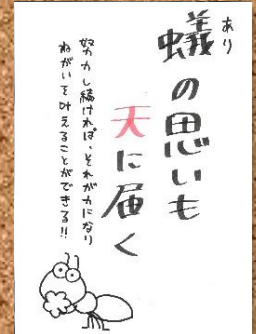 あり
蟻の思いも
天に届く
努力し続ければ、それが力になり
ねがいを叶えることができる!!